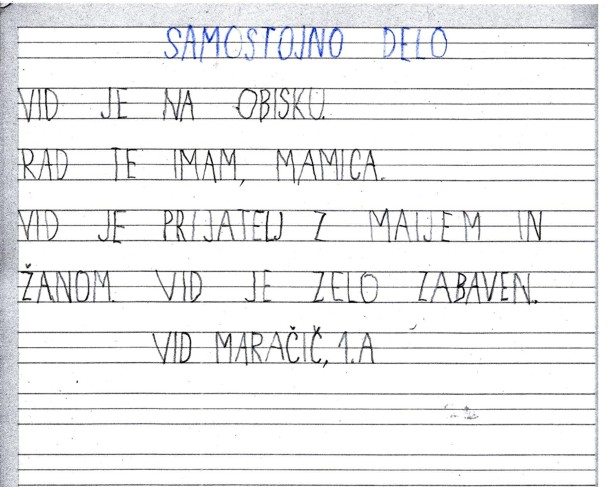 SAMOSTOJNO DELO
VID JE NA OBISKU.
RAD TE IMAM, MAMICA.
VID JE PRIJATELJ Z MAIJEM IN
ŽANOM. VID JE ZELO ZABAVEN.
VID MARAČIČ, 1.A